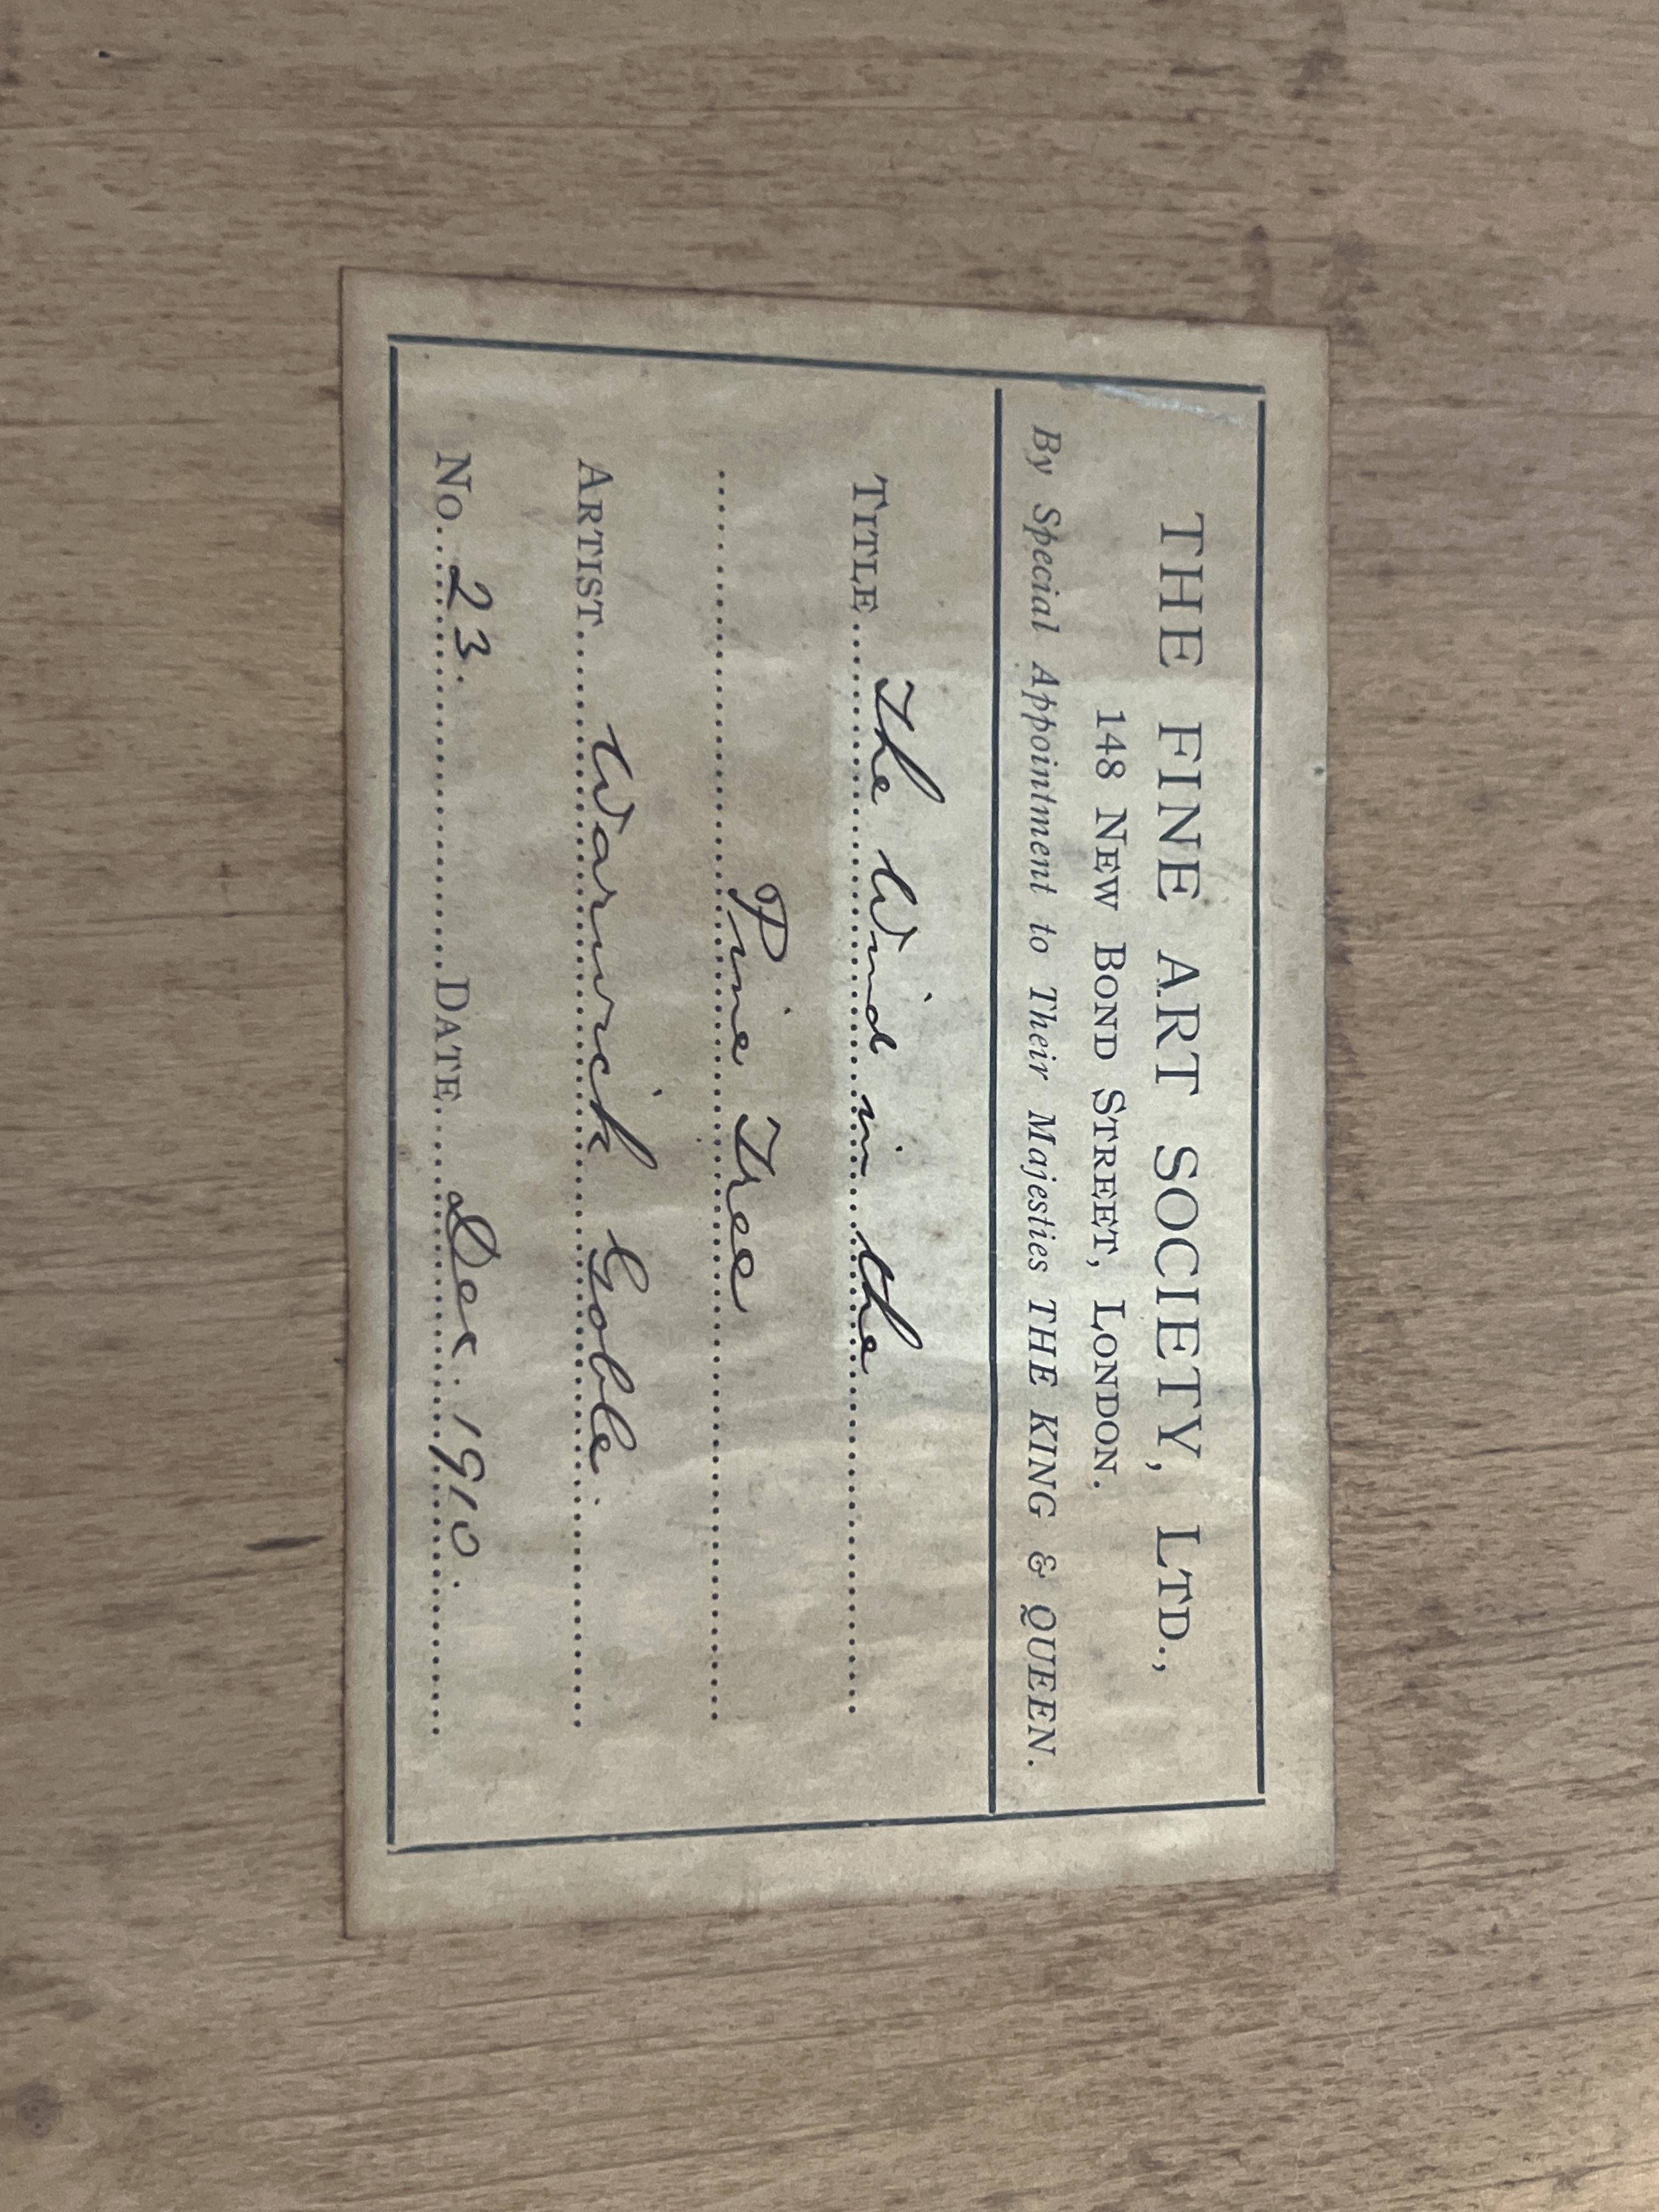 THE FINE ART SOCIETY, LTD.,
148 NEW BOND STREET, LONDON.
By Special Appointment to Their Majesties THE KING & QUEEN.
TITLE The Wind in the
Pine Tree
ARTIST Warwick Goble.
No. 23. DATE Dec. 1910.